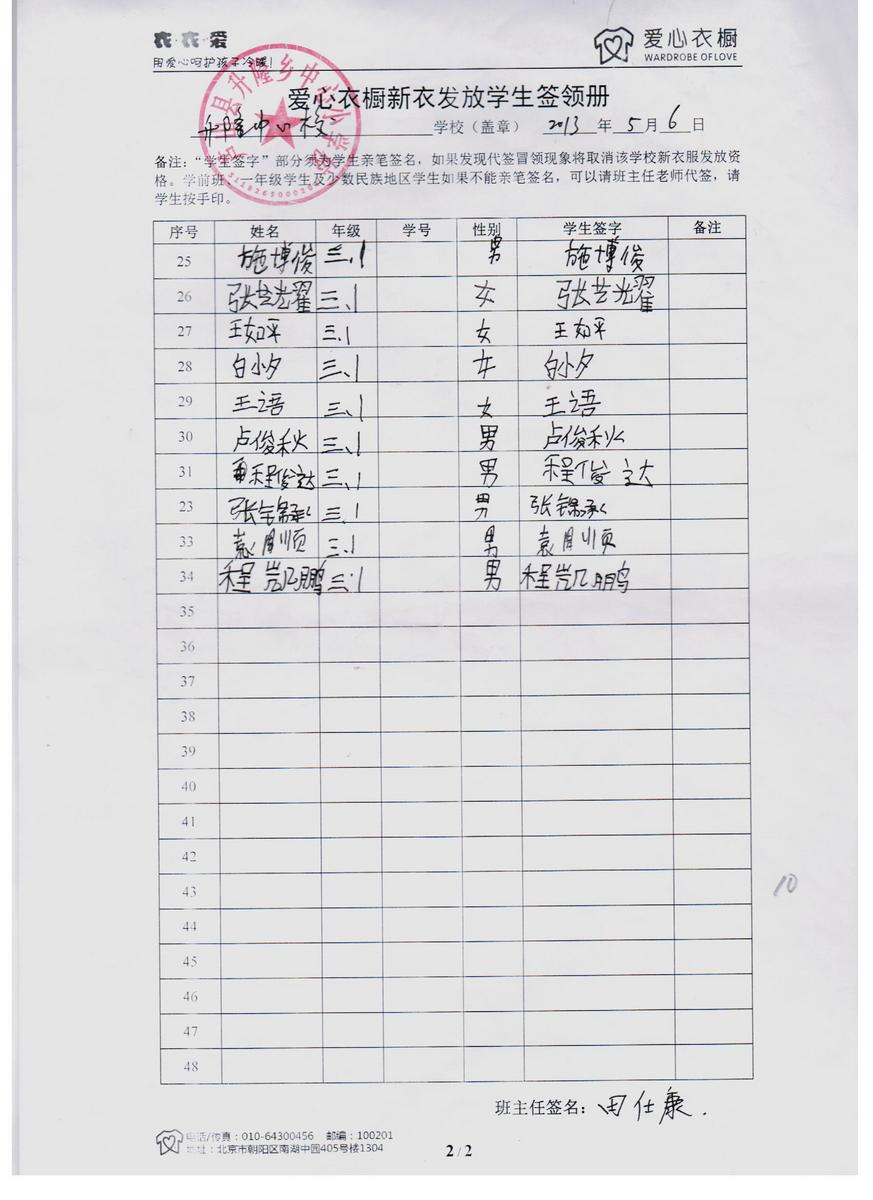 衣·衣·爱
用爱心呵护孩子冷暖!
爱心衣橱
WARDROBE OF LOVE
县升隆乡中心小学校
爱心衣橱新衣发放学生签领册
升隆中心校 学校（盖章） 2013 年 5 月 6 日
备注：“学生签字”部分须为学生亲笔签名，如果发现代签冒领现象将取消该学校新衣服发放资
格。学前班、一年级学生及少数民族地区学生如果不能亲笔签名，可以请班主任老师代签，请
学生按手印。
序号 姓名 年级 学号 性别 学生签字 备注
25 施博俊 三.1 男 施博俊
26 张芸光耀 三、1 女 张芸光耀
27 王如平 三.1 女 王如平
28 白小夕 三、1 女 白小夕
29 王语 三、1 女 王语
30 卢俊秋 三、1 男 卢俊秋
31 程俊达 三、1 男 程俊达
23 张锦承 三.1 男 张锦承
33 袁周顺 三.1 男 袁周顺
34 程凯鹏 三.1 男 程凯鹏
35
36
37
38
39
40
41
42
43
10
44
45
46
47
48
班主任签名：田仕康.
电话/传真：010-64300456 邮编：100201
地址：北京市朝阳区南湖中园405号楼1304
2 / 2